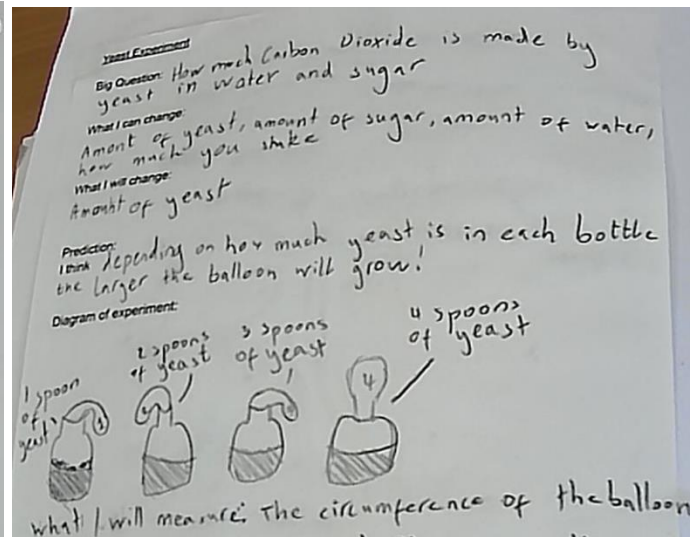 Yeast Experiment
Big Question: How much Carbon Dioxide is made by
yeast in water and sugar
What I can change:
Amont of yeast, amount of sugar, amount of water,
how much you shake
What I will change:
Amount of yeast
Prediction:
I think depending on how much yeast is in each bottle
the larger the balloon will grow!
Diagram of experiment:
1 spoon
of
yeast
2 spoons
of yeast
3 spoons
of yeast
4 spoons
of yeast
4
What I will measure: The circumference of the balloon